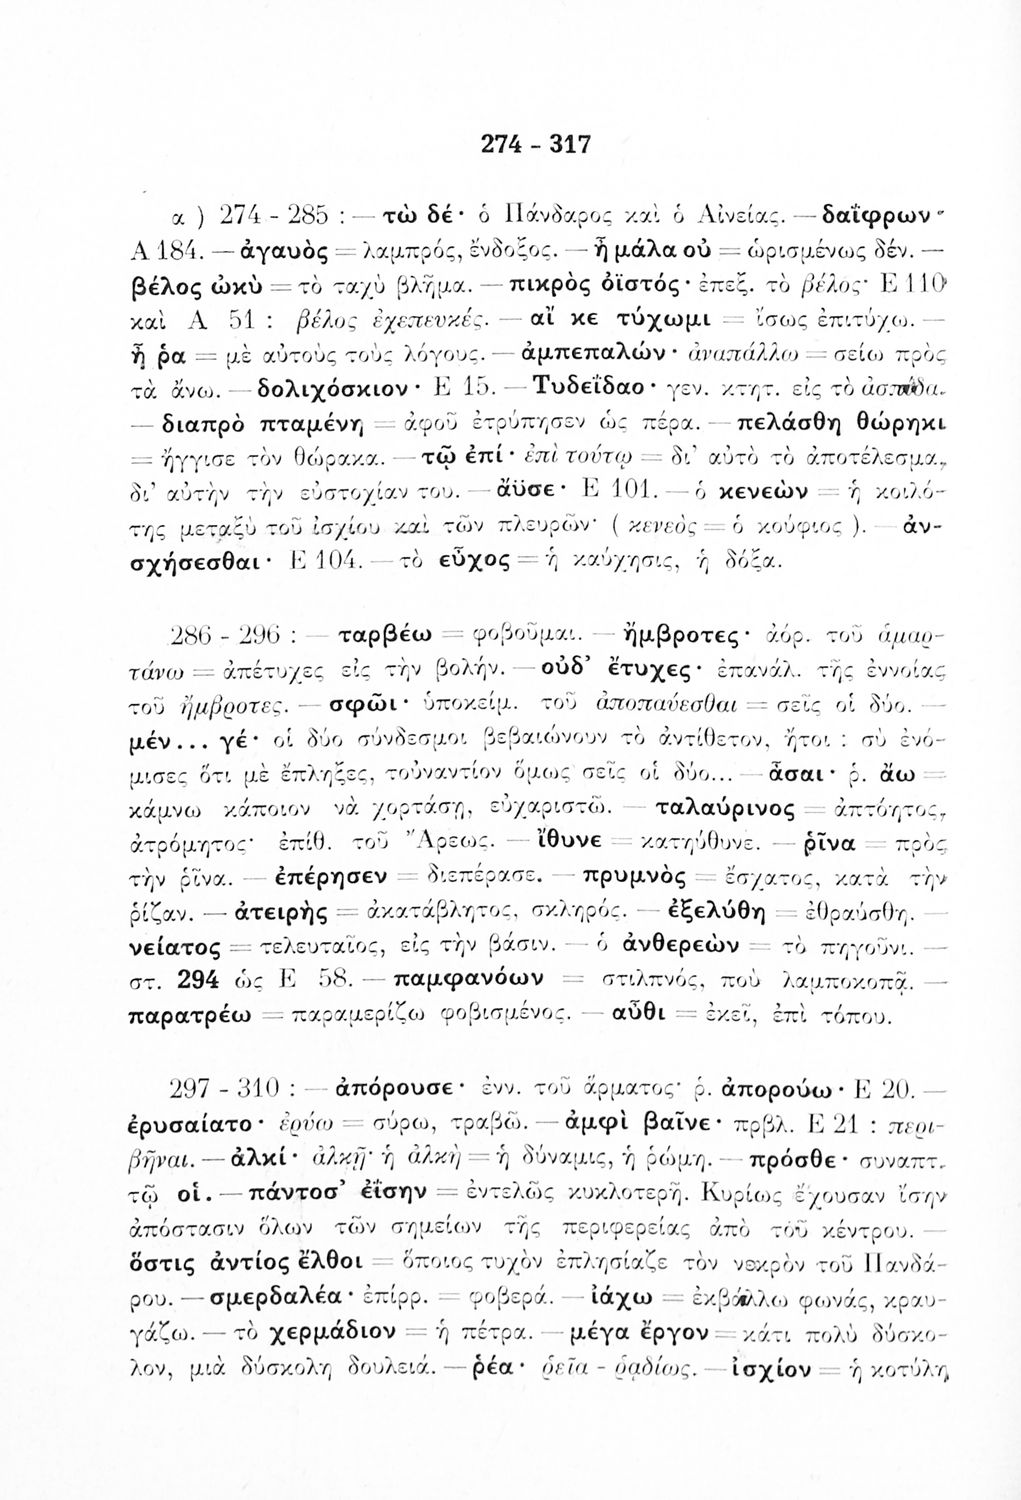 274 - 317
α ) 274 - 285 : — τὼ δέ· ὁ Πάνδαρος καὶ ὁ Αἰνείας. — δαΐφρων·
Α 184. — ἀγαυὸς = λαμπρός, ἔνδοξος. — ἦ μάλα οὐ = ὡρισμένως δέν. —
βέλος ὠκὺ = τὸ ταχὺ βλῆμα. — πικρὸς ὀϊστός· ἐπεξ. τὸ βέλος· Ε 110
καὶ Α 51 : βέλος ἐχεπευκές. — αἴ κε τύχωμι = ἴσως ἐπιτύχω. —
ἦ ῥα = μὲ αὐτοὺς τοὺς λόγους. — ἀμπεπαλών· ἀναπάλλω = σείω πρὸς
τὰ ἄνω. — δολιχόσκιον· Ε 15. — Τυδεΐδαο· γεν. κτητ. εἰς τὸ ἀσπίδα.
— διαπρὸ πταμένη = ἀφοῦ ἐτρύπησεν ὡς πέρα. — πελάσθη θώρηκι
= ἤγγισε τὸν θώρακα. — τῷ ἐπί· ἐπὶ τούτῳ = δι᾽ αὐτὸ τὸ ἀποτέλεσμα,
δι᾽ αὐτὴν τὴν εὐστοχίαν του. — ἄϋσε· Ε 101. — ὁ κενεὼν = ἡ κοιλό-
της μεταξὺ τοῦ ἰσχίου καὶ τῶν πλευρῶν· ( κενεὸς = ὁ κούφιος ). — ἀν-
σχήσεσθαι· Ε 104. — τὸ εὖχος = ἡ καύχησις, ἡ δόξα.
286 - 296 : — ταρβέω = φοβοῦμαι. — ἤμβροτες· ἀόρ. τοῦ ἁμαρ-
τάνω = ἀπέτυχες εἰς τὴν βολήν. — οὐδ᾽ ἔτυχες· ἐπανάλ. τῆς ἐννοίας
τοῦ ἤμβροτες. — σφῶι· ὑποκείμ. τοῦ ἀποπαύεσθαι = σεῖς οἱ δύο. —
μέν... γέ· οἱ δύο σύνδεσμοι βεβαιώνουν τὸ ἀντίθετον, ἤτοι : σὺ ἐνό-
μισες ὅτι μὲ ἔπληξες, τοὐναντίον ὅμως σεῖς οἱ δύο... — ἆσαι· ῥ. ἄω =
κάμνω κάποιον νὰ χορτάσῃ, εὐχαριστῶ. — ταλαύρινος = ἀπτόητος,
ἀτρόμητος· ἐπίθ. τοῦ Ἄρεως. — ἴθυνε = κατηύθυνε. — ῥῖνα = πρὸς
τὴν ῥῖνα. — ἐπέρησεν = διεπέρασε. — πρυμνὸς = ἔσχατος, κατὰ τὴν
ῥίζαν. — ἀτειρὴς = ἀκατάβλητος, σκληρός. — ἐξελύθη = ἐθραύσθη. —
νείατος = τελευταῖος, εἰς τὴν βάσιν. — ὁ ἀνθερεὼν = τὸ πηγοῦνι. —
στ. 294 ὡς Ε 58. — παμφανόων = στιλπνός, ποὺ λαμποκοπᾷ. —
παρατρέω = παραμερίζω φοβισμένος. — αὖθι = ἐκεῖ, ἐπὶ τόπου.
297 - 310 : — ἀπόρουσε· ἐνν. τοῦ ἅρματος· ῥ. ἀπορούω· Ε 20. —
ἐρυσαίατο· ἐρύω = σύρω, τραβῶ. — ἀμφὶ βαῖνε· πρβλ. Ε 21 : περι-
βῆναι. — ἀλκί· ἀλκῇ· ἡ ἀλκὴ = ἡ δύναμις, ἡ ῥώμη. — πρόσθε· συναπτ.
τῷ οἱ. — πάντοσ᾽ ἐΐσην = ἐντελῶς κυκλοτερῆ. Κυρίως ἔχουσαν ἴσην
ἀπόστασιν ὅλων τῶν σημείων τῆς περιφερείας ἀπὸ τοῦ κέντρου. —
ὅστις ἀντίος ἔλθοι = ὅποιος τυχὸν ἐπλησίαζε τὸν νεκρὸν τοῦ Πανδά-
ρου. — σμερδαλέα· ἐπίρρ. = φοβερά. — ἰάχω = ἐκβάλλω φωνάς, κραυ-
γάζω. — τὸ χερμάδιον = ἡ πέτρα. — μέγα ἔργον = κάτι πολὺ δύσκο-
λον, μιὰ δύσκολη δουλειά. — ῥέα· ῥεῖα - ῥᾳδίως. — ἰσχίον = ἡ κοτύλη